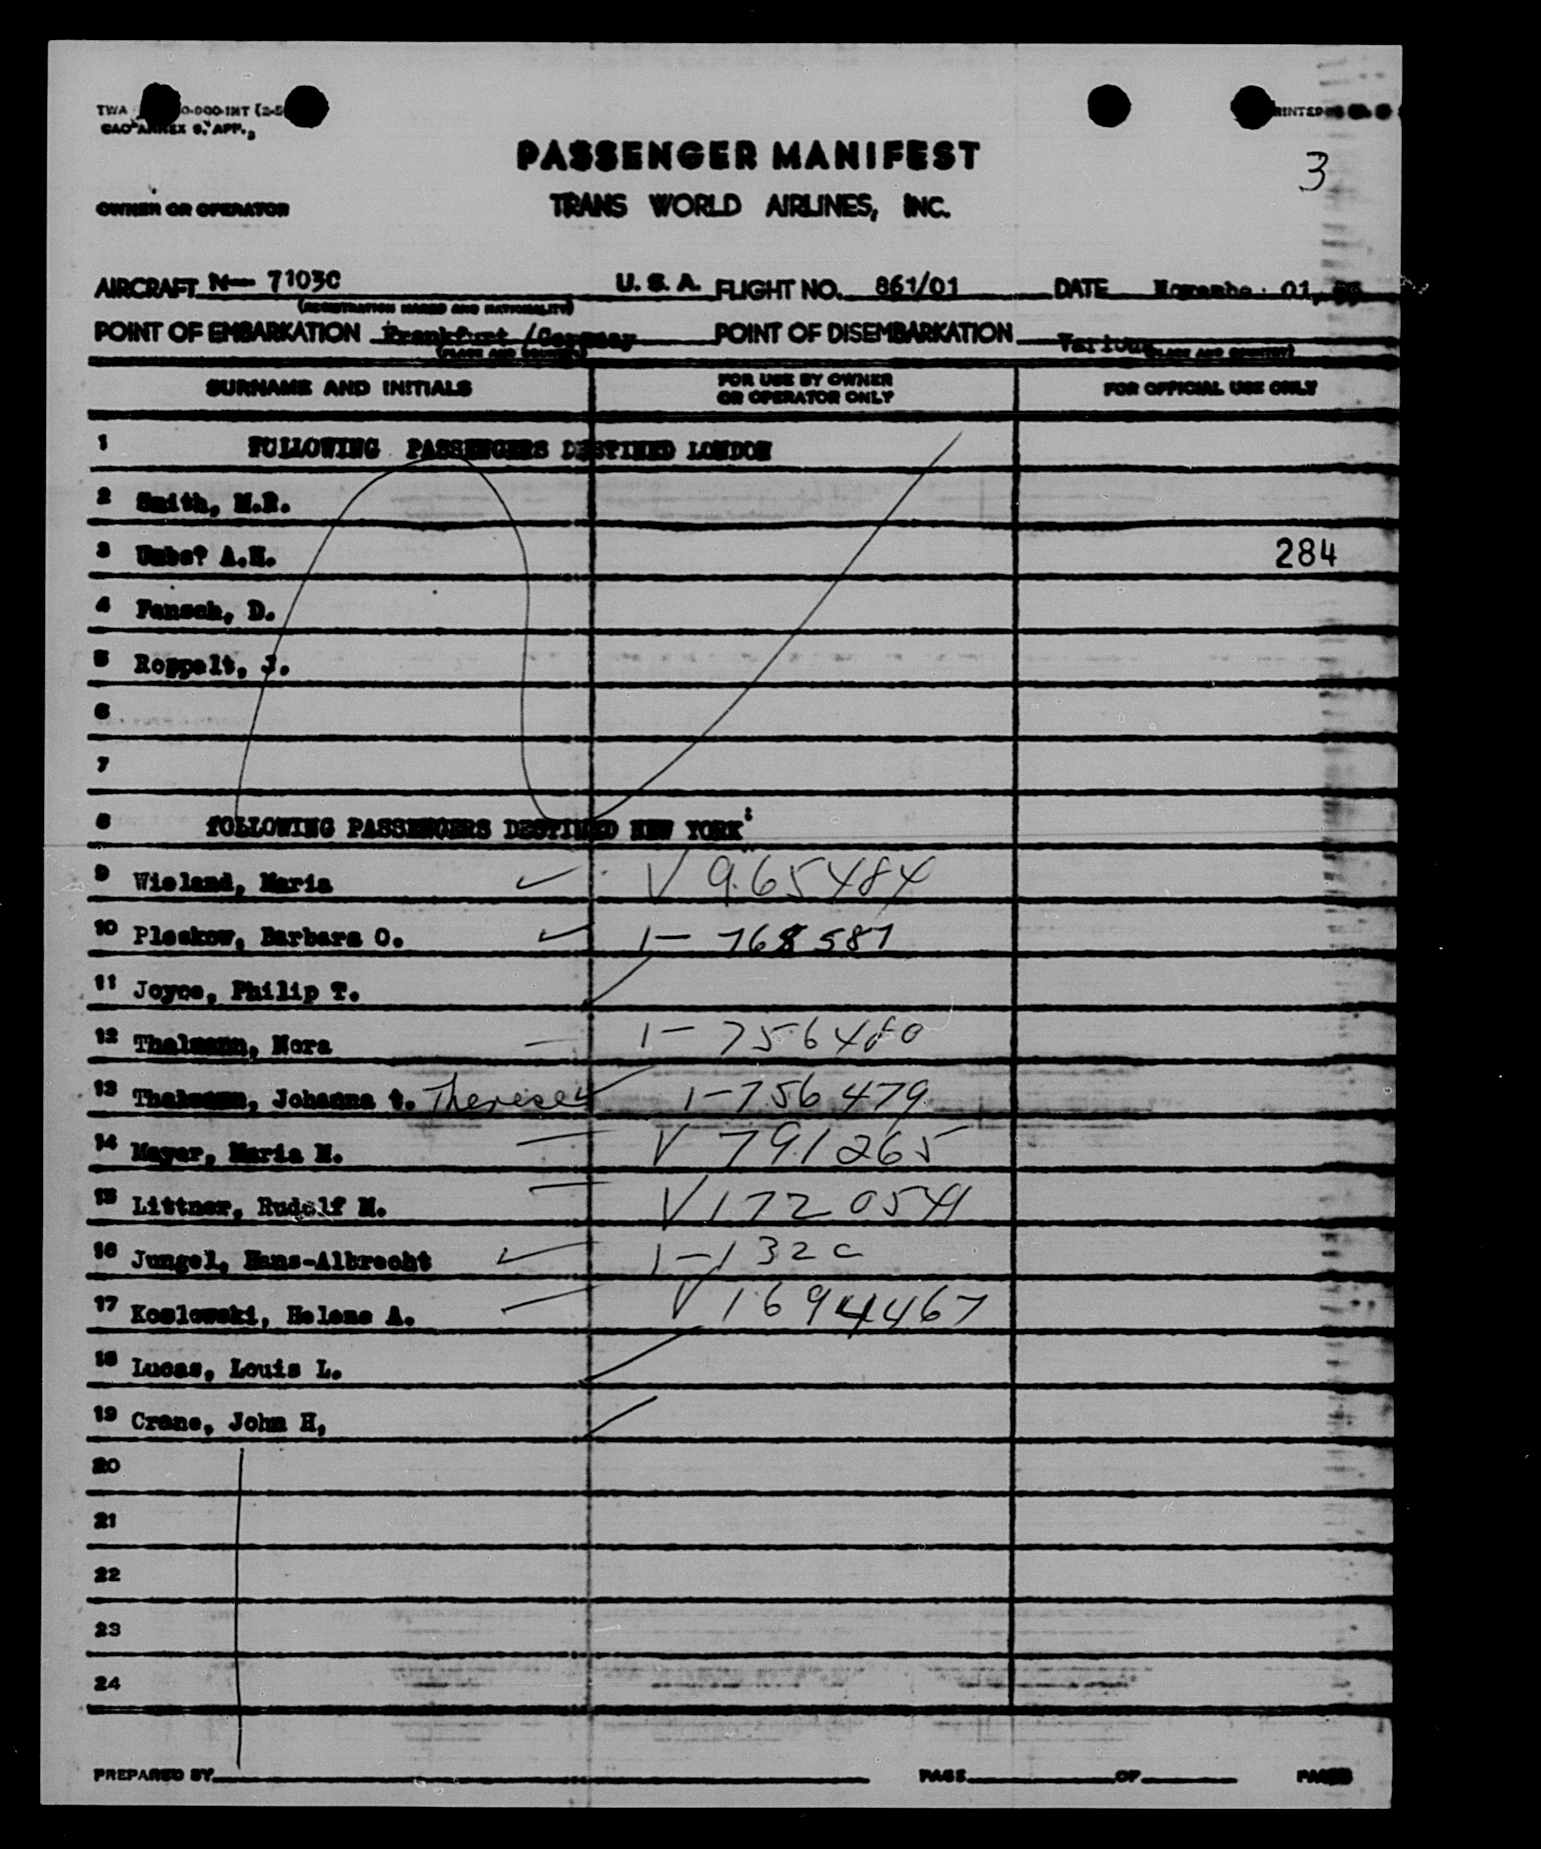 TWA 0-000-INT (2-5
CAO ANNEX 9, APP. 3
PRINTED
PASSENGER MANIFEST
3
OWNER OR OPERATOR
TRANS WORLD AIRLINES, INC.
AIRCRAFT N— 7103C U. S. A. FLIGHT NO. 861/01 DATE 01,
(REGISTRATION MARKS AND NATIONALITY)
POINT OF EMBARKATION Frankfurt /Germany POINT OF DISEMBARKATION Various
(PLACE AND COUNTRY) (PLACE AND COUNTRY)
SURNAME AND INITIALS FOR USE BY OWNER OR OPERATOR ONLY FOR OFFICIAL USE ONLY
1 FOLLOWING PASSENGERS DESTINED LONDON
2 Smith, M.R.
3 A.H. 284
4 Fansch, D.
5 Roppelt, J.
6
7
8 FOLLOWING PASSENGERS DESTINED NEW YORK:
9 Wieland, Maria V 965484
10 Pleskow, Barbara O. 1- 768587
11 Joyce, Philip T.
12 Thalmann, Nora 1- 756480
13 Thalmann, Johanna t. Therese 1-756479
14 Mayer, Maria M. V 791265
15 Littner, Rudolf M. V 1720541
16 Jungel, Hans-Albrecht 1-132c
17 Koslowski, Helene A. V 1694467
18 Lucas, Louis L.
19 Crane, John H,
20
21
22
23
24
PREPARED BY PAGE OF PAGES